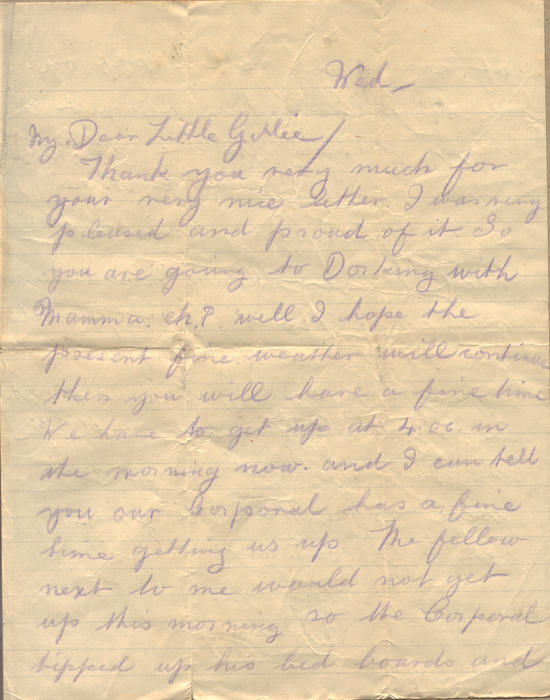 Wed –
My Dear Little Girlie /
Thank you very much for
your very nice letter. I was very
pleased and proud of it So
you are going to Dorking with
Mamma. eh? well I hope the
present fine weather will continue
then you will have a fine time
We have to get up at 4. oc. in
the morning now. and I can tell
you our Corporal has a fine
time getting us up. The fellow
next to me would not get
up this morning so the Corporal
tipped up his bed boards and